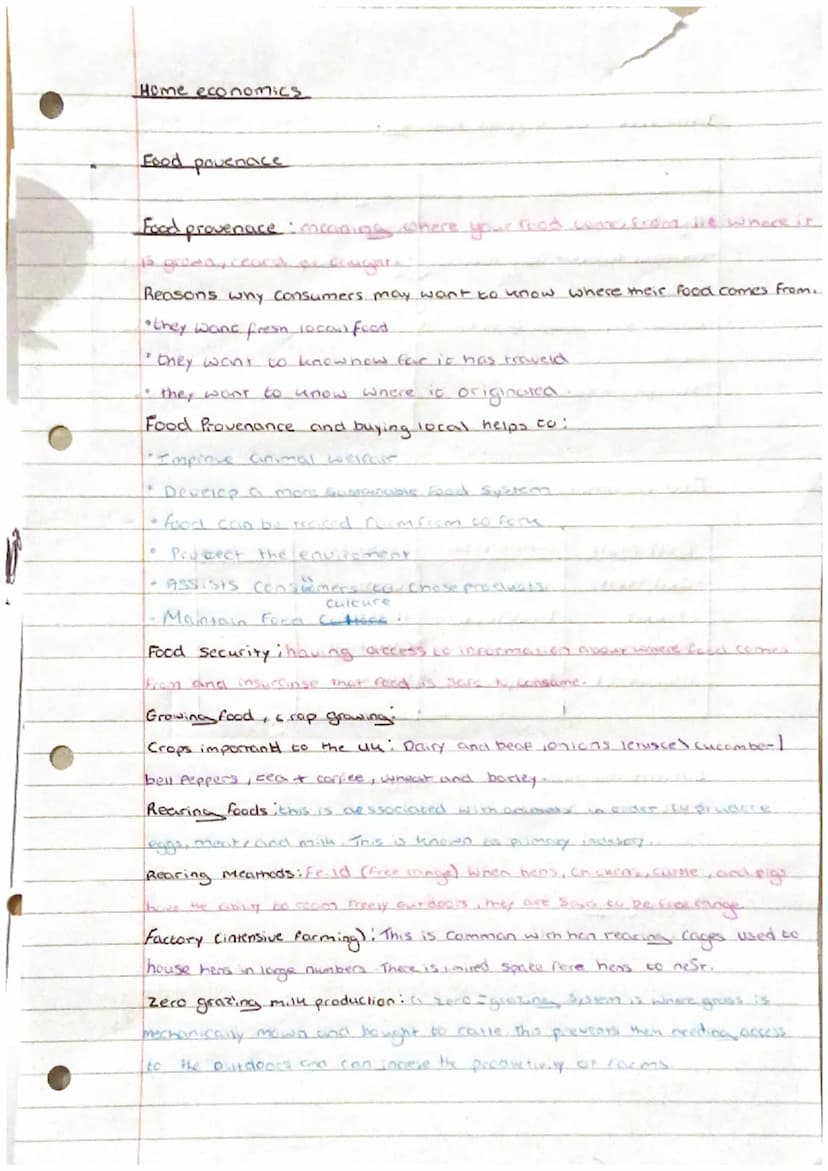 Home economics
Food povenace
Food provenace : meaning where your food comes from ie where it
is grown, reard or caught.
Reasons why consumers may want to know where their food comes from.
•they want fresh local food
•they want to know how far it has traveld
•they want to know where it originated.
Food Provenance and buying local helps to:
•Improve animal welfair
•Develop a more sustainable food system
•food can be traced farm to fork
•Protect the enviroment
•Assists consumers to chose products
•Maintain Food culture.
Food security: having access to information about where food comes
from and that food is safe to consume.
Growing food, crop growing:
Crops important to the UK: Dairy and beaf, onions cucomber
bell peppers, tea + coffee, wheat and barley.
Rearing foods: this is aessociated with animals in order to produce
eggs, meat, and milk. This is known as primary industry.
Rearing meathods: Feild (free range) when hens, chickens, cattle, and pigs
have the ability to roam freely outdoors, they are said to be free range
Factory (intensive farming): This is common with hen rearing. Cages used to
house hens in large numbers. There is space hens to nest.
Zero grazing milk production: a zero-grazing system is where grass is
mechanically mown and bought to cattle. this prevents them needing access
to the outdoors and can increse the productivity of farms.